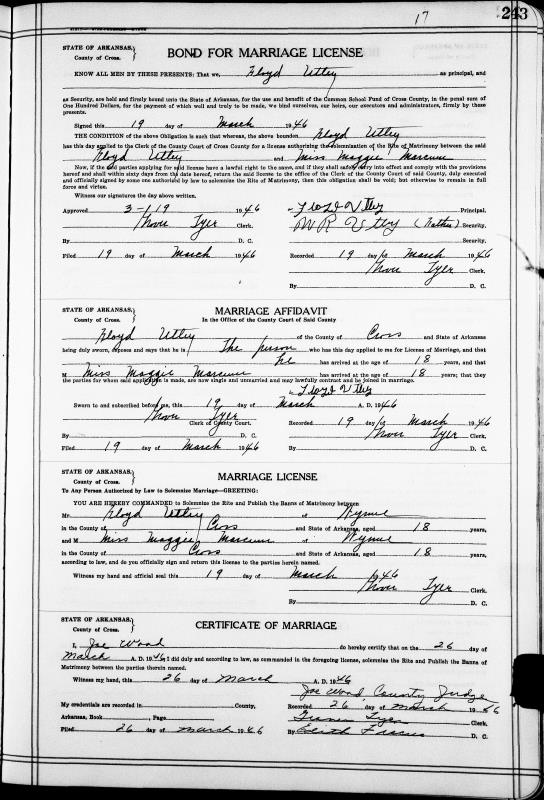 17
243
STATE OF ARKANSAS,
County of Cross.
BOND FOR MARRIAGE LICENSE
KNOW ALL MEN BY THESE PRESENTS: That we, Floyd Utley as principal, and
as Security, are held and firmly bound unto the State of Arkansas, for the use and benefit of the Common School Fund of Cross County, in the penal sum of
One Hundred Dollars, for the payment of which well and truly to be made, we bind ourselves, our heirs, our executors and administrators, firmly by these
presents.
Signed this 19 day of March 1946
THE CONDITION of the above Obligation is such that whereas, the above bounden Floyd Utley
has this day applied to the Clerk of the County Court of Cross County for a license authorizing the solemnization of the Rite of Matrimony between the said
Floyd Utley and Miss Maggie Marcum
Now, if the said parties applying for said license have a lawful right to the same, and if they shall safely carry into effect and comply with the provisions
hereof and shall within sixty days from the date hereof, return the said license to the office of the Clerk of the County Court of said County, duly executed
and officially signed by some one authorized by law to solemnize the Rite of Matrimony, then this obligation shall be void; but otherwise to remain in full
force and virtue.
Witness our signatures the day above written.
Approved 3-19 1946 Floyd Utley Principal,
Tyer Clerk. W R Utley (Father) Security,
By D. C. Security.
Filed 19 day of March 1946 Recorded 19 day of March 1946
Tyer Clerk,
By D. C.
STATE OF ARKANSAS,
County of Cross.
MARRIAGE AFFIDAVIT
In the Office of the County Court of Said County
Floyd Utley of the County of Cross and State of Arkansas
being duly sworn, deposes and says that he is The person who has this day applied to me for License of Marriage, and that
he has arrived at the age of 18 years, and that
M Miss Maggie Marcum has arrived at the age of 18 years; that they
the parties for whom said application is made, are now single and unmarried and may lawfully contract and be joined in marriage.
Floyd Utley
Sworn to and subscribed before me, this 19 day of March A. D. 1946
Tyer
Clerk of County Court. Recorded 19 day of March 1946
By D. C. Tyer Clerk,
Filed 19 day of March 1946 By D. C.
STATE OF ARKANSAS,
County of Cross.
MARRIAGE LICENSE
To Any Person Authorized by Law to Solemnize Marriage—GREETING:
YOU ARE HEREBY COMMANDED to Solemnize the Rite and Publish the Banns of Matrimony between
Mr. Floyd Utley of Wynne
in the County of Cross and State of Arkansas, aged 18 years,
and M Miss Maggie Marcum of Wynne
in the County of Cross and State of Arkansas, aged 18 years,
according to law, and do you officially sign and return this license to the parties herein named.
Witness my hand and official seal this 19 day of March 1946
Tyer Clerk.
By D. C.
STATE OF ARKANSAS,
County of Cross.
CERTIFICATE OF MARRIAGE
I, Joe Wood do hereby certify that on the 26 day of
March A. D. 1946, I did duly and according to law, as commanded in the foregoing license, solemnize the Rite and Publish the Banns of
Matrimony between the parties therein named.
Witness my hand, this 26 day of March A. D. 1946
Joe Wood, County Judge
My credentials are recorded in County, Recorded 26 day of March 1946
Arkansas, Book , Page Tyer Clerk.
Filed 26 day of March 1946 By Edith D. C.